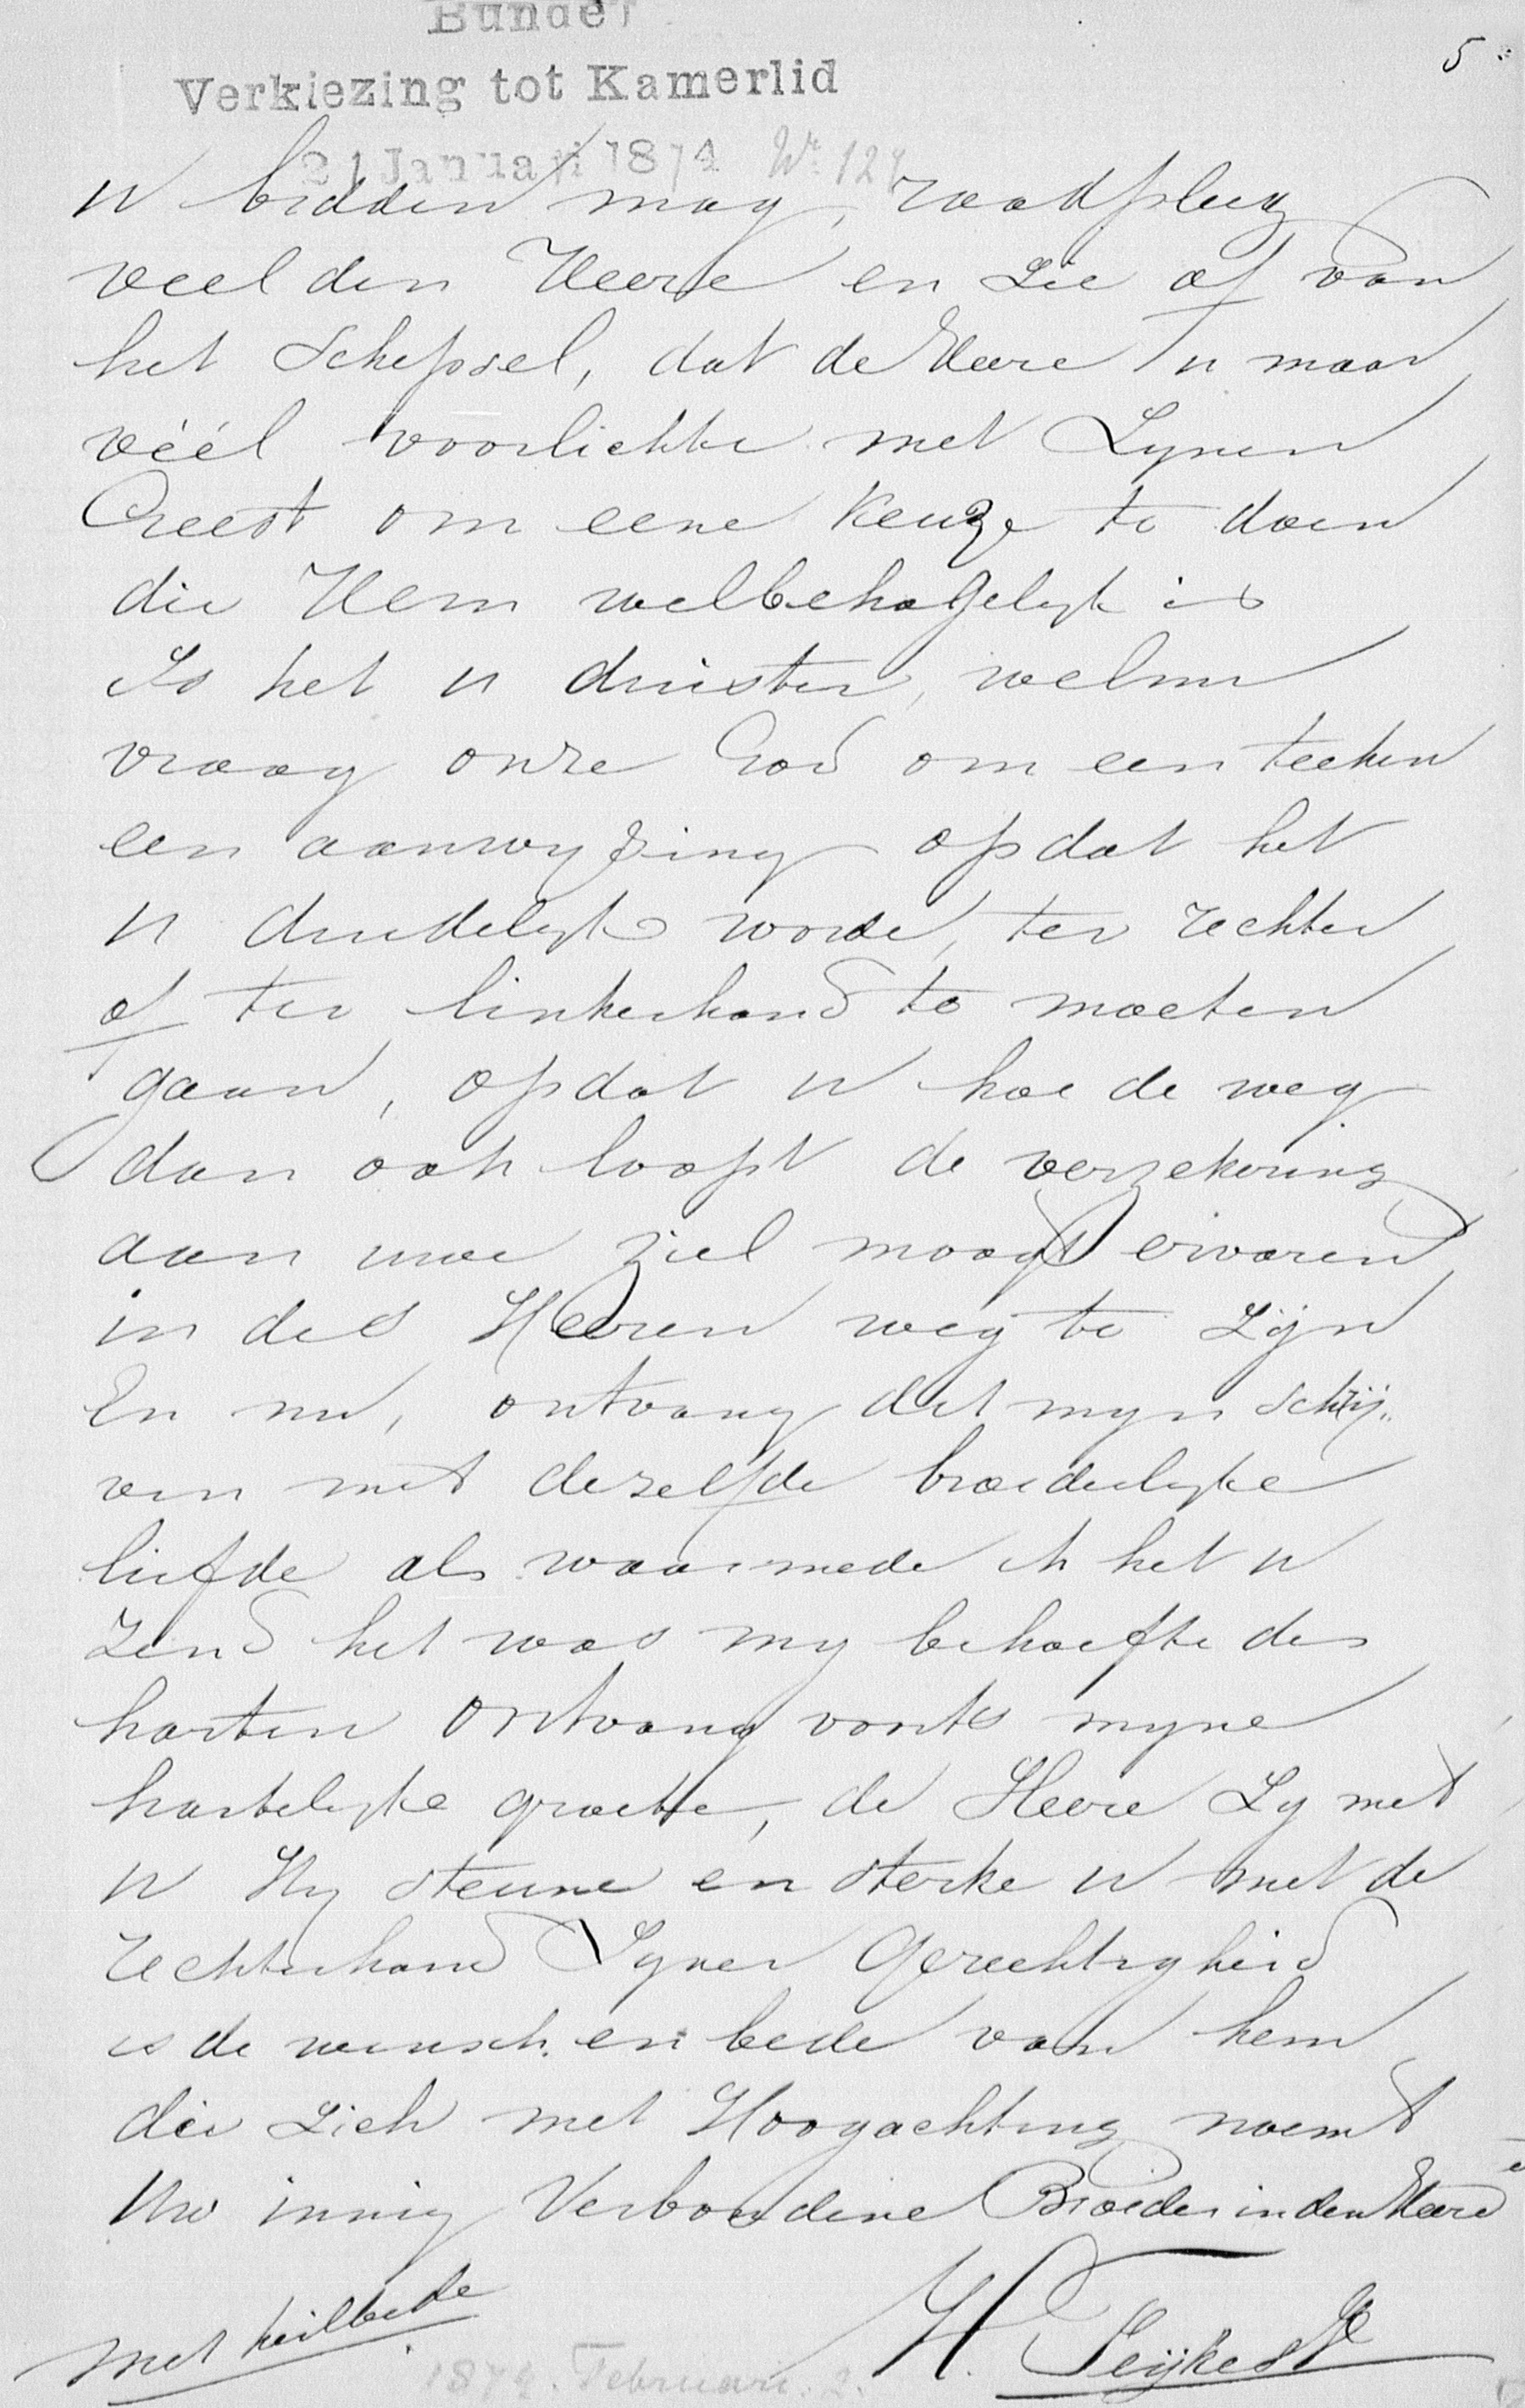 Bundel
5
Verkiezing tot Kamerlid
21 Januari 1874 Nr. 127
U bidden mag, raadpleeg
veel den Heere en zie af van
het Schepsel, dat de Heere U maar
véél voorlichtte met Zynen
Geest om eene Keuze te doen
die Hem welbehagelyk is
Is het U duister, welnu
vraag onze God om een teeken
een aanwyzing opdat het
U duidelyk worde, ter rechter
of ter linkerhand te moeten
gaan, opdat U hoe de weg
dan ook loopt de verzekering
aan uwe ziel moogt ervaren
in des Heeren weg te zijn
En nu, ontvang dit myn schrij„
ven met dezelfde broederlyke
liefde als waarmede ik het U
zend het was my behoefte des
harten ontvang voorts myne
hartelyke groete, de Heere zy met
U Hy steune en sterke U met de
rechterhand Zyner Gerechtigheid
is de wensch en bede van hem
die zich met Hoogachting noemt
Uw innig Verbondene Broeder in den Heere
met heilbede
H. Feijkes
1874. Februari. 2.